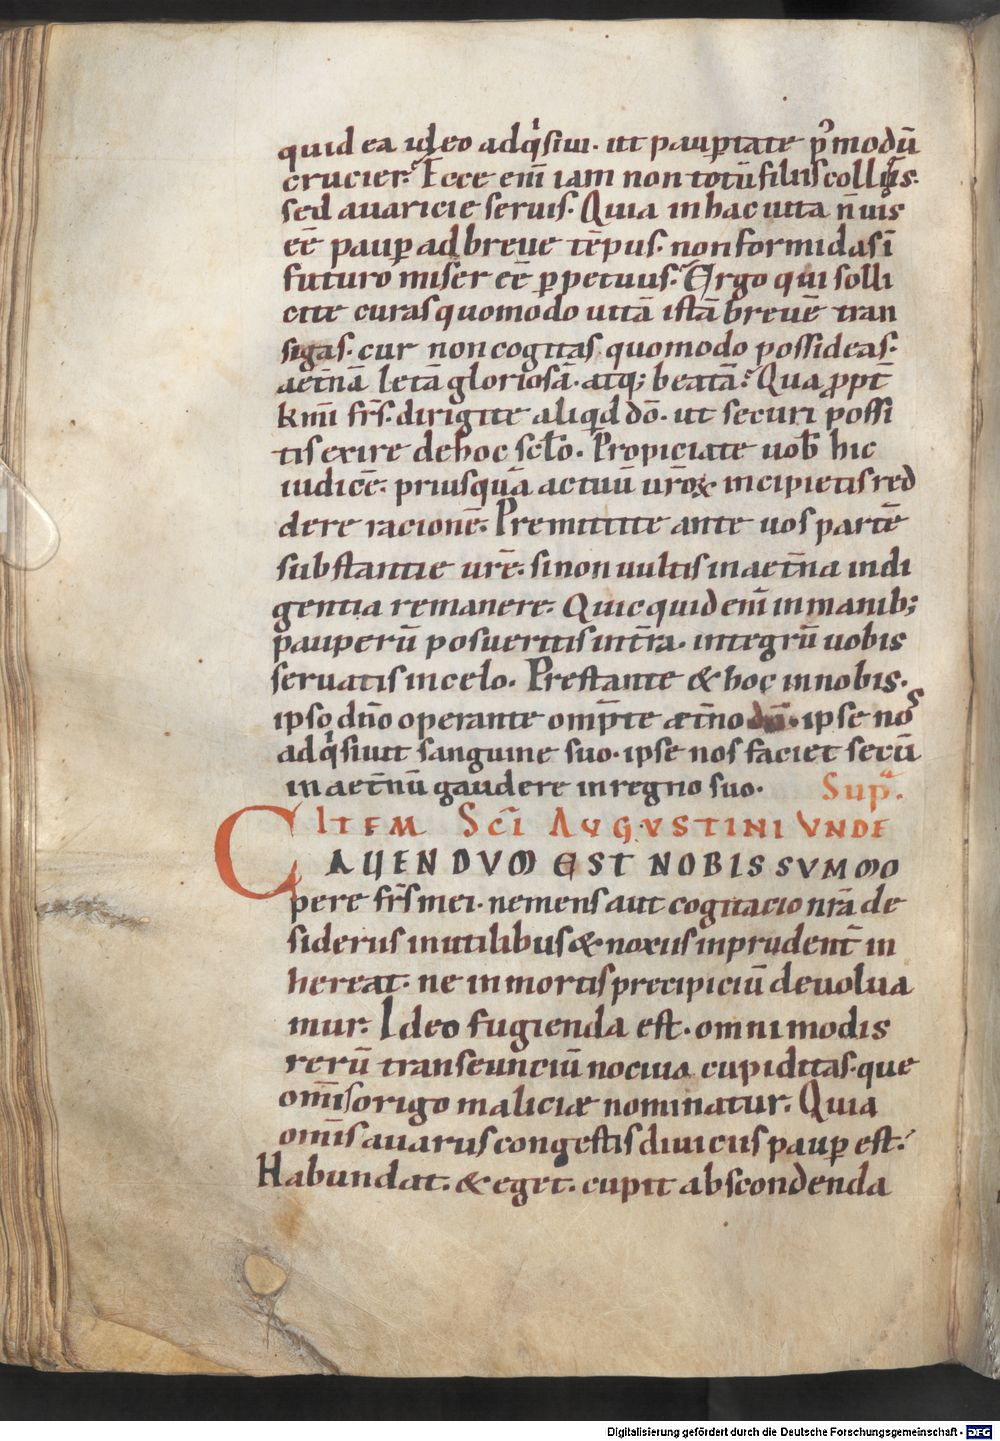 quid ea ideo adq̇siui. ut pauꝑtate p̾modū
crucier. Ecce eni̅ iam non totū filius colligis.
sed auaricie seruis. Quia in hac uita n̄ uis
eē pauꝑ ad breue tēpus. non formidas ī
futuro miser eē ꝑpetuus. Ergo qui solli
cite curas quomodo uitā istā breuē tran
sigas. cur non cogitas quomodo possideas.
aet̄nā letā gloriosā. atq; beatā. Qua ꝓpt̄
kmi̅ frs̄. dirigite aliqid dō. ut securi possi
tis exire de hoc sclo̅. Propiciate uob̅ hic
iudicē. priusquā actuū ur̄oꝝ incipietis red
dere racionē. Premittite ante uos partē
substantie urē. si non uultis in aet̄na indi
gentia remanere. Quicquid eni̅ in manib;
pauperū posueritis in t̄ra. integrū uobis
seruatis in celo. Prestante & hoc in nobis.
ipso dn̄o operante omp̄te æt̄no ipse nos
adq̇siuit sanguine suo. ipse nos faciet secū
in aet̄nū gaudere in regno suo. Supª.
ITEM Sc̄i AUGUSTINI UNDE
CAUENDUM EST NOBIS SUMMO
pere frs̄ mei. ne mens aut cogitacio nr̄a de
sideriis inutilibus & noxiis inprudent̄ in
hereat. ne in mortis precipiciū deuolua
mur. Ideo fugienda est. omnimodis
rerū transeunciū nociua cupiditas. que
omi̅s origo maliciæ nominatur. Quia
omi̅s auarus congestis diuiciis pauꝑ est.
Habundat. & eget. cupit abscondenda
Digitalisierung gefördert durch die Deutsche Forschungsgemeinschaft - DFG